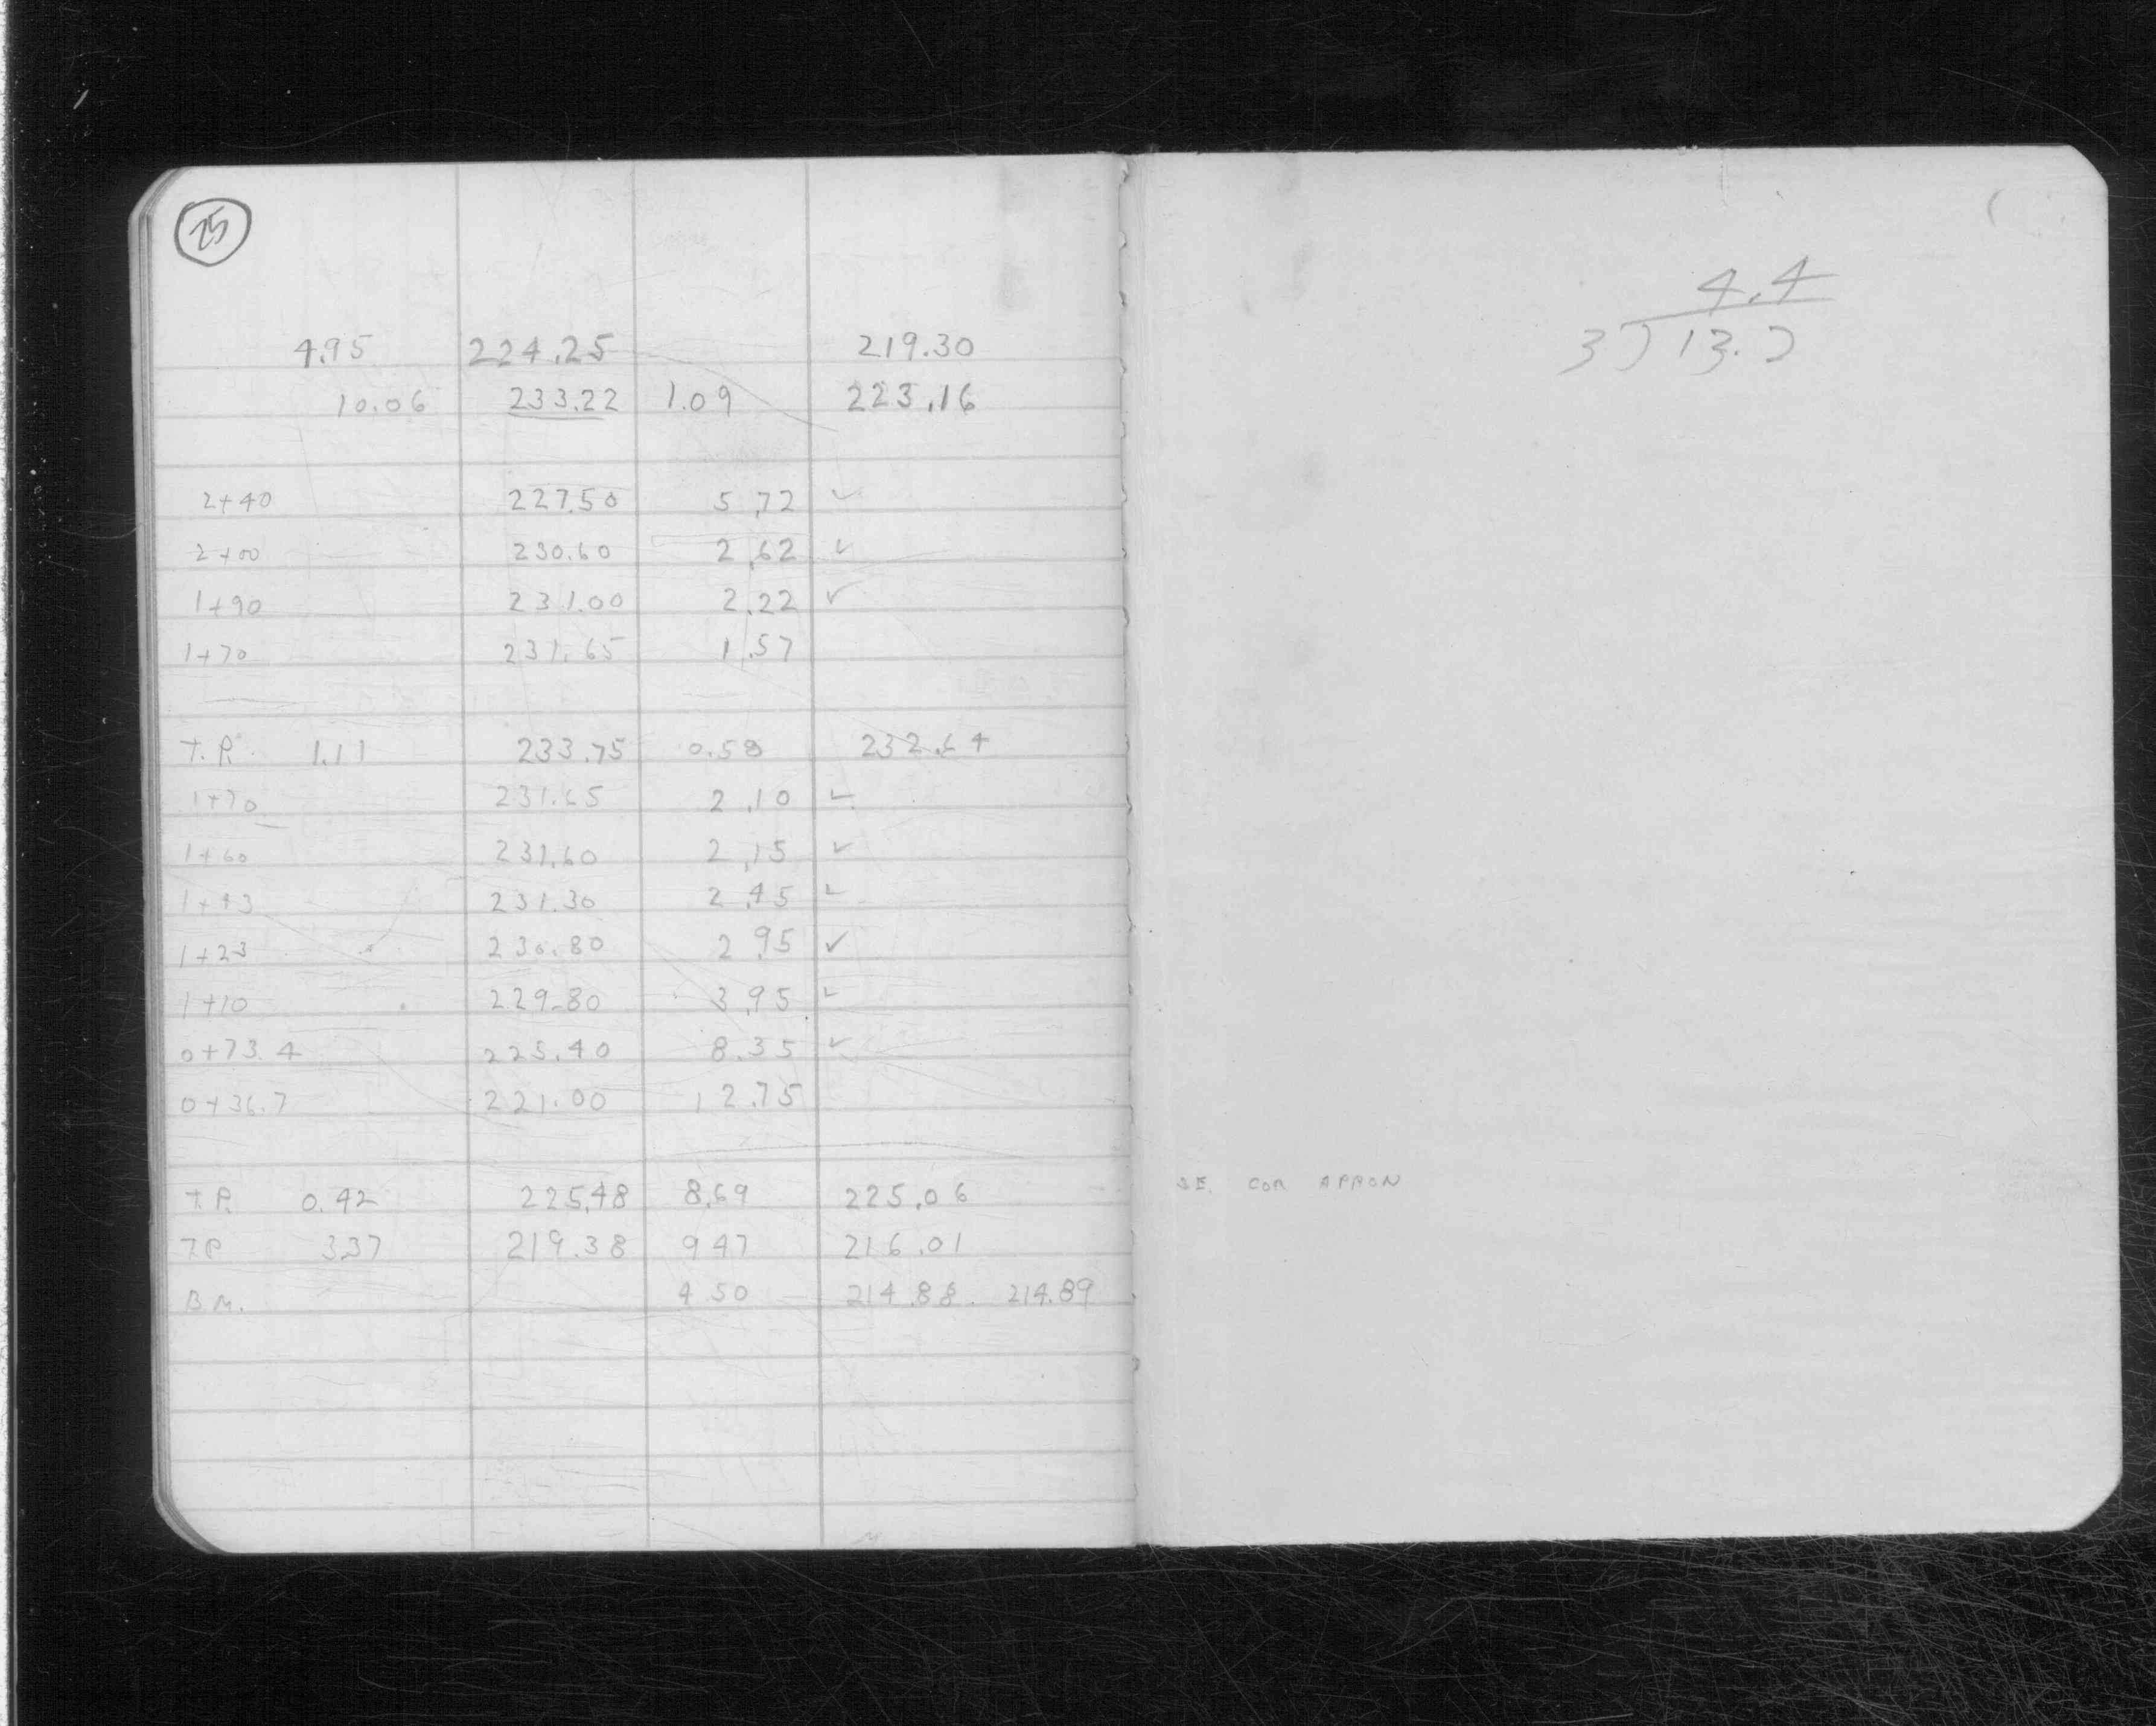 25
4.95 224.25 219.30
10.06 233.22 1.09 223.16
2+40 227.50 5.72 ✓
2+00 230.60 2.62 ✓
1+90 231.00 2.22 ✓
1+70 231.65 1.57
T.P. 1.11 233.75 0.58 232.64
1+70 231.65 2.10 ✓
1+60 231.60 2.15 ✓
1+43 231.30 2.45 ✓
1+23 230.80 2.95 ✓
1+10 229.80 3.95 ✓
0+73.4 225.40 8.35 ✓
0+36.7 221.00 12.75
T.P. 0.42 225.48 8.69 225.06
T.P. 3.37 219.38 9.47 216.01
B.M. 4.50 214.88 214.89
4.4
3)13.2
SE. COR APRON